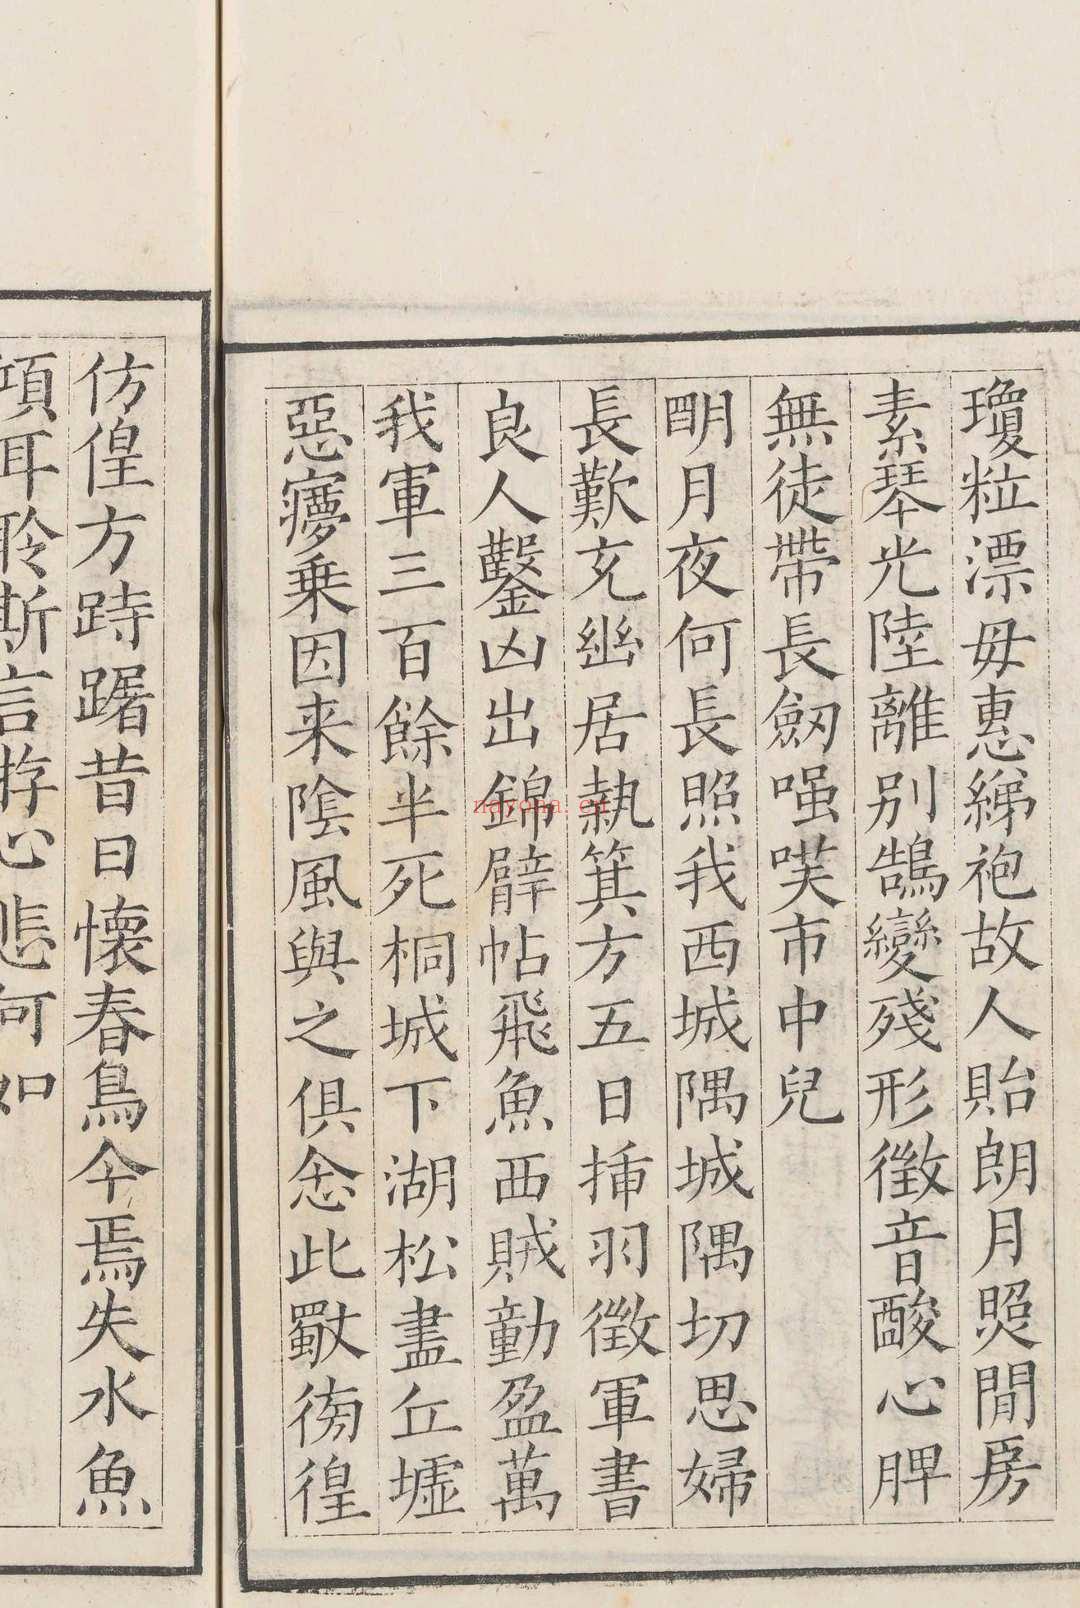 瓊粒漂毋惠綈袍故人貽朗月照閒房
素琴光陸離別鵠變殘形徵音酸心脾
無徒帶長劒嘆市中兒
明月夜何長照我西城隅城隅切思婦
長歎玄幽居執箕方五日揷羽徵軍書
良人鑿凶出錦臂帖飛魚西賊動盈萬
我軍三百餘半死桐城下湖松盡丘墟
惡瘮乗因来陰風與之俱念此歜徬徨
仿偟方跱躇昔日懷春鳥今焉失水魚
項耳聆斯言㳺心悲何如
nayona.cn